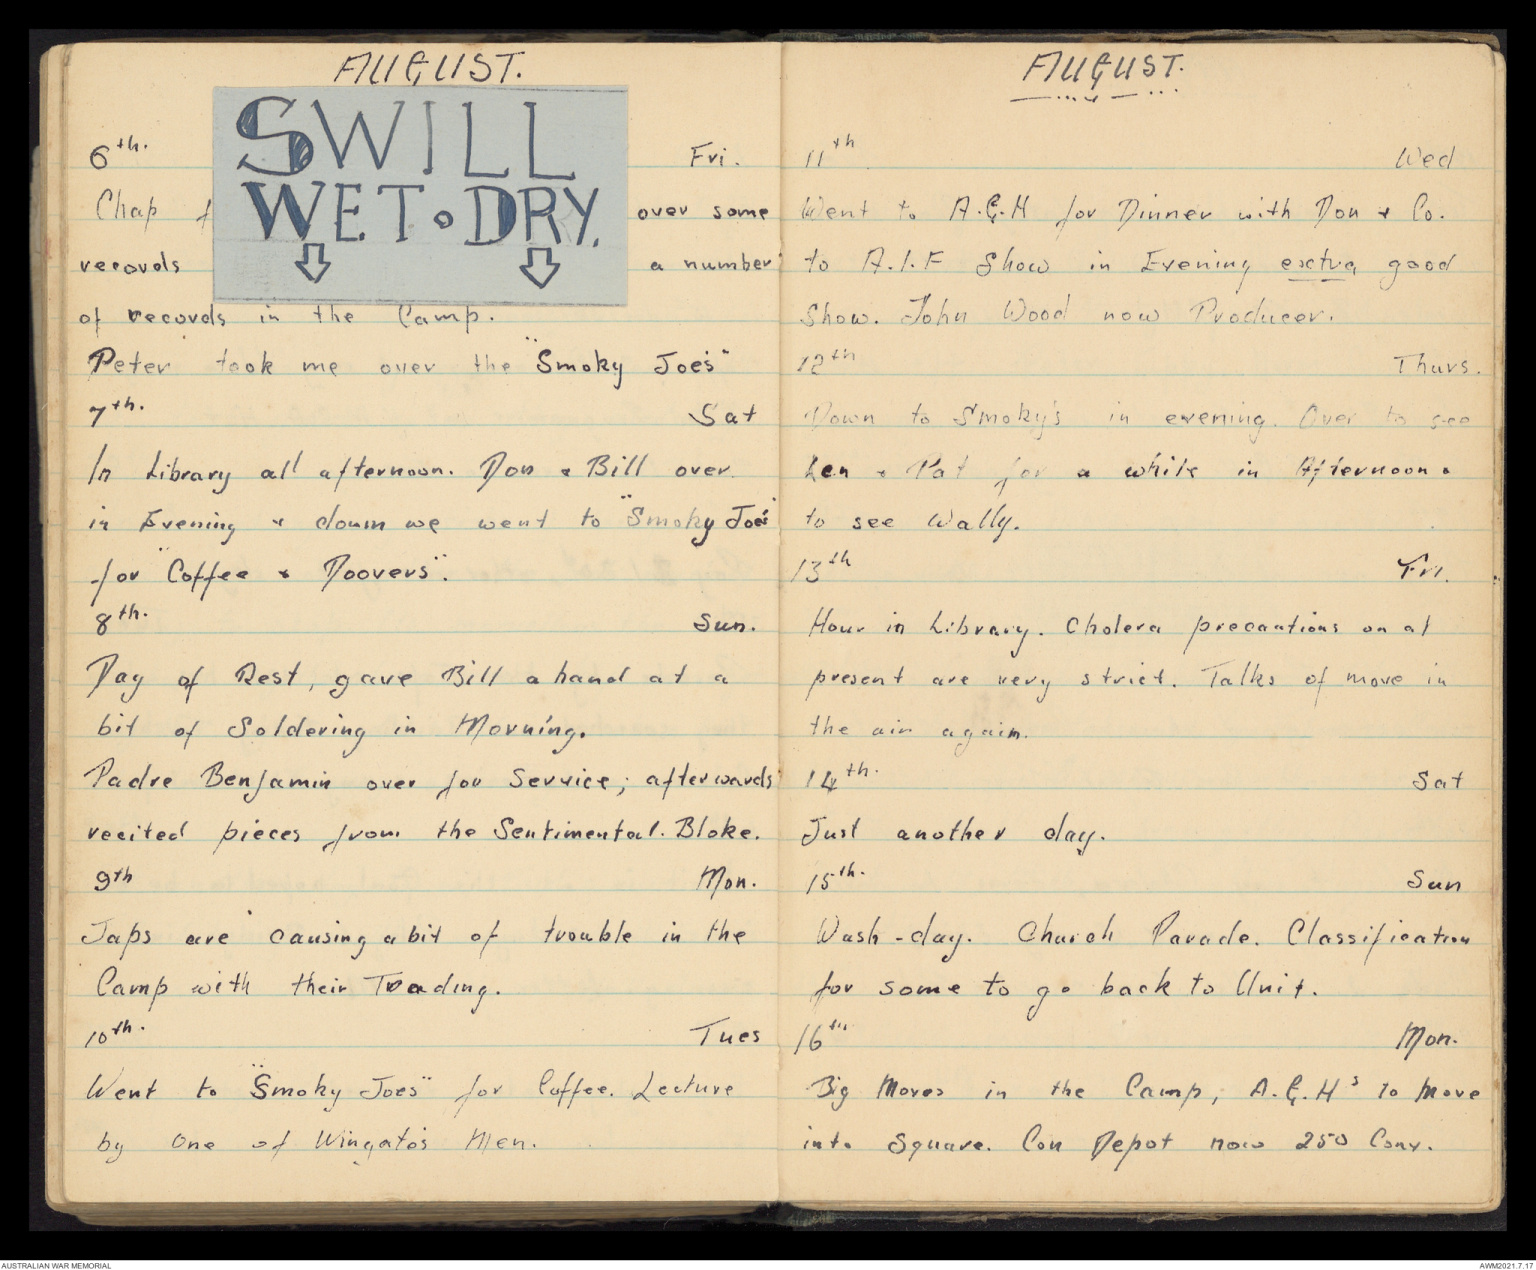 AUGUST.
SWILL
WET. DRY.
6th. Fri.
Chap over some
records a number
of records in the Camp.
Peter took me over the "Smoky Joe's"
7th. Sat
In Library all afternoon. Don & Bill over
in Evening & down we went to "Smoky Joes"
for "Coffee & Doovers".
8th. Sun.
Day of Rest, gave Bill a hand at a
bit of Soldering in Morning.
Padre Benjamin over for Service; afterwards
recited pieces from the Sentimental Bloke.
9th Mon.
Japs are causing a bit of trouble in the
Camp with their Trading.
10th. Tues
Went to "Smoky Joes" for Coffee. Lecture
by one of Wingate's Men.
AUGUST.
11th Wed
Went to A.G.H for Dinner with Don & Co.
to A.I.F Show in Evening extra good
Show. John Wood now Producer.
12th Thurs.
Down to Smoky's in evening. Over to see
Len & Pat for a while in Afternoon &
to see Wally.
13th Fri.
Hour in Library. Cholera precautions on at
present are very strict. Talks of move in
the air again.
14th. Sat
Just another day.
15th. Sun
Wash-day. Church Parade. Classification
for some to go back to Unit.
16th Mon.
Big Moves in the Camp, A.G.H's to Move
into Square. Con Depot now 250 Conv.
AUSTRALIAN WAR MEMORIAL AWM2021.7.17